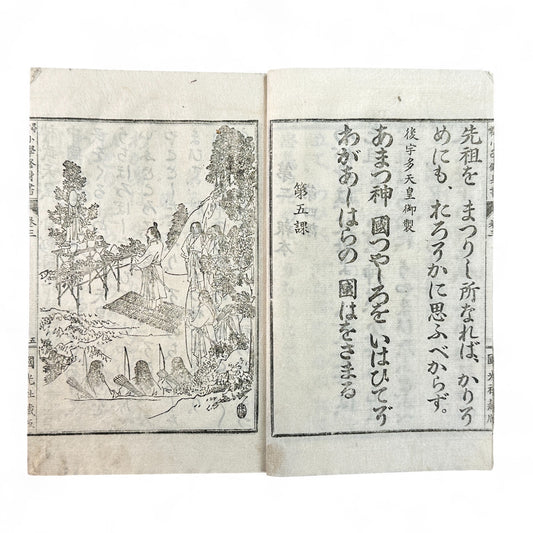 先祖を まつりし所なれば、かりそ
めにも、おろそかに思ふべからず。
後宇多天皇御製
あまつ神 國つやしろを いはひてぞ
わがあしはらの 國はをさまる
第五課
小學修身書
卷三
五
國光社藏版